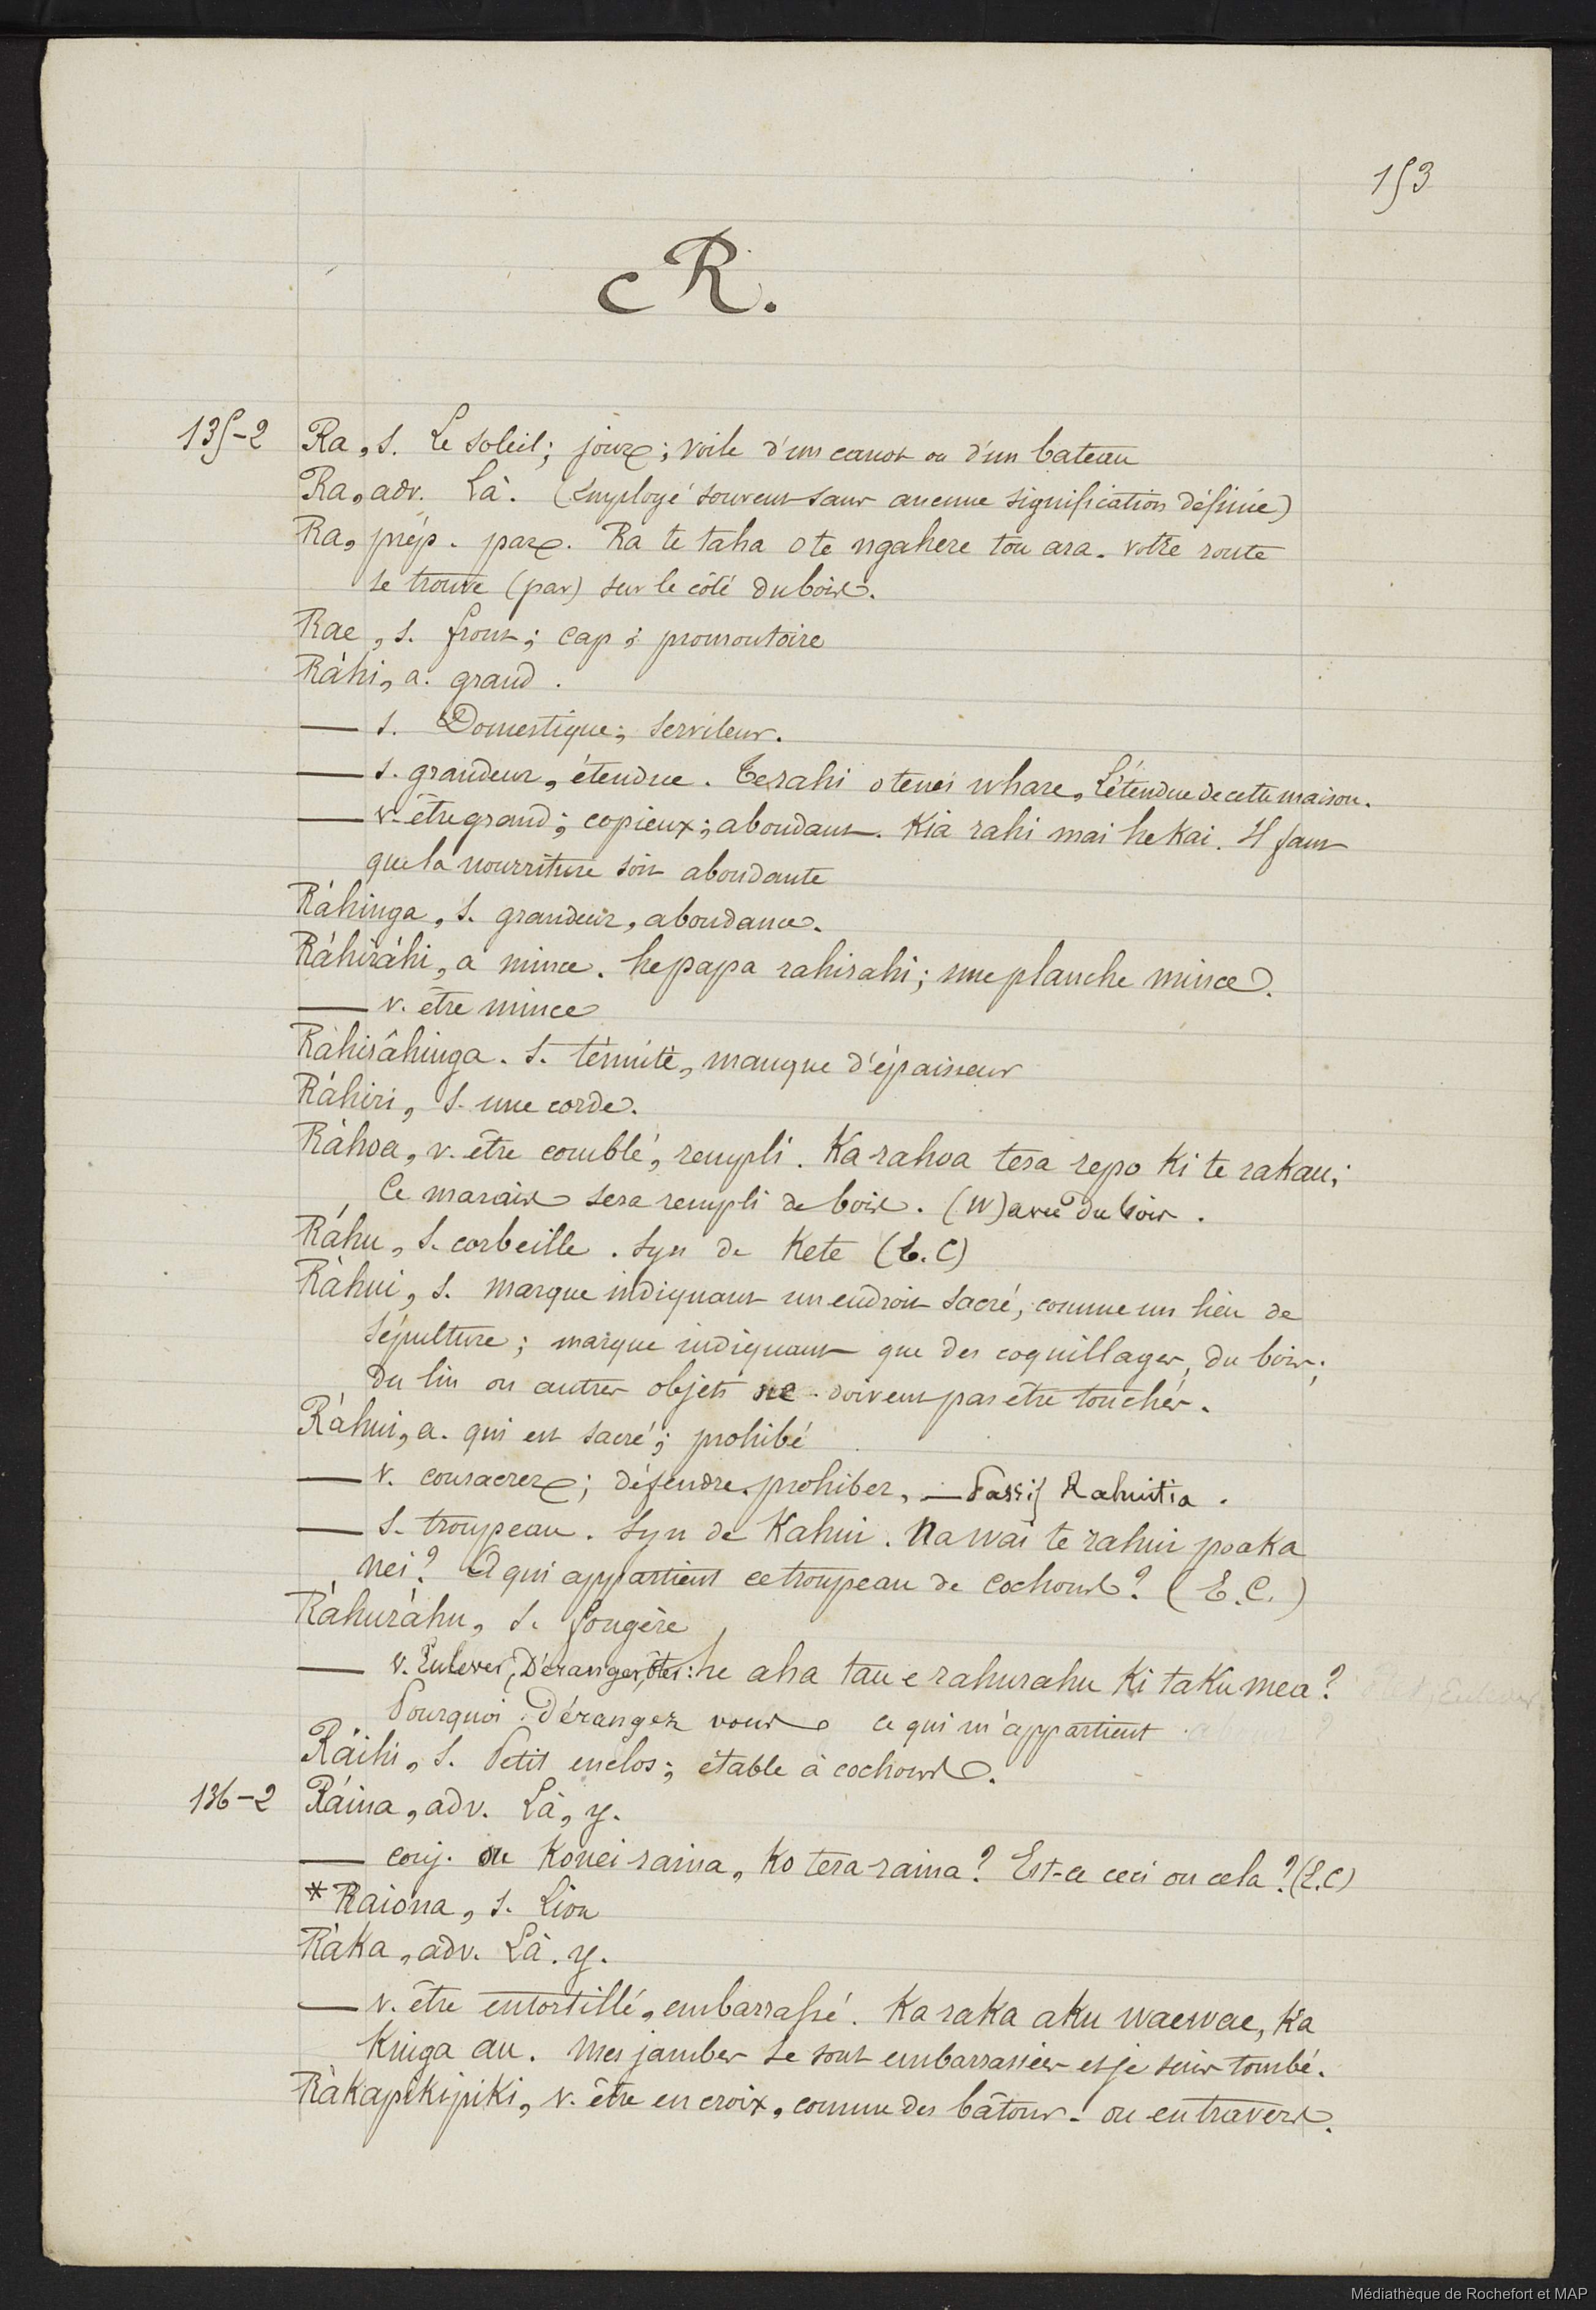 153
R.
135-2 Ra, s. Le soleil; jour; voile d'un canot ou d'un bateau
Ra, adv. Là. (Employé souvent sans aucune signification définie)
Ra, prép. par. Ra te taha o te ngahere tou ara. votre route
se trouve (par) sur le côté du bois.
Rae, s. front; cap; promontoire
Ráhi, a. grand.
— s. Domestique; serviteur.
— s. grandeur, étendue. Te rahi o tenei whare, L'étendue de cette maison.
— v. être grand; copieux; abondant. Kia rahi mai he kai. Il faut
que la nourriture soit abondante
Ráhinga, s. grandeur, abondance.
Ráhiráhi, a mince. he papa rahirahi; une planche mince.
— v. être mince
Ráhirâhinga. s. ténuité, manque d'épaisseur
Ráhiri, s. une corde.
Ráhoa, v. être comblé, rempli. Ka rahoa tera repo ki te rakau;
Ce marais sera rempli de bois. (W) avec du bois.
Ráhu, s. corbeille. syn de Kete (E.C)
Ràhui, s. marque indiquant un endroit sacré, comme un lieu de
sépulture; marque indiquant que des coquillages, du bois,
du lin ou autres objets ne doivent pas être touchés.
Ráhui, a. qui est sacré; prohibé
— v. consacrer; défendre, prohiber, — Passif Rahuitia.
— s. troupeau. syn de Kahui. Na wai te rahui poaka
nei? A qui appartient ce troupeau de cochons? (E.C.)
Ráhuráhu, s. fougère
— v. Enlever, Déranger, ôter: he aha tau e rahurahu ki taku mea?
Pourquoi dérangez vous ce qui m'appartient
Ráihi, s. Petit enclos; étable à cochons.
136-2 Ráina, adv. Là, y.
— conj. ou Ko nei raina, Ko tera raina? Est-ce ceci ou cela? (E.C)
* Raiona, s. Lion
Ráka, adv. Là. y.
— v. être entortillé, embarrassé. Ka raka aku waewae, Ka
hinga au. Mes jambes se sont embarrassées et je suis tombé.
Ràkapikipiki, v. être en croix, comme des bâtons - ou en travers.
Médiathèque de Rochefort et MAP